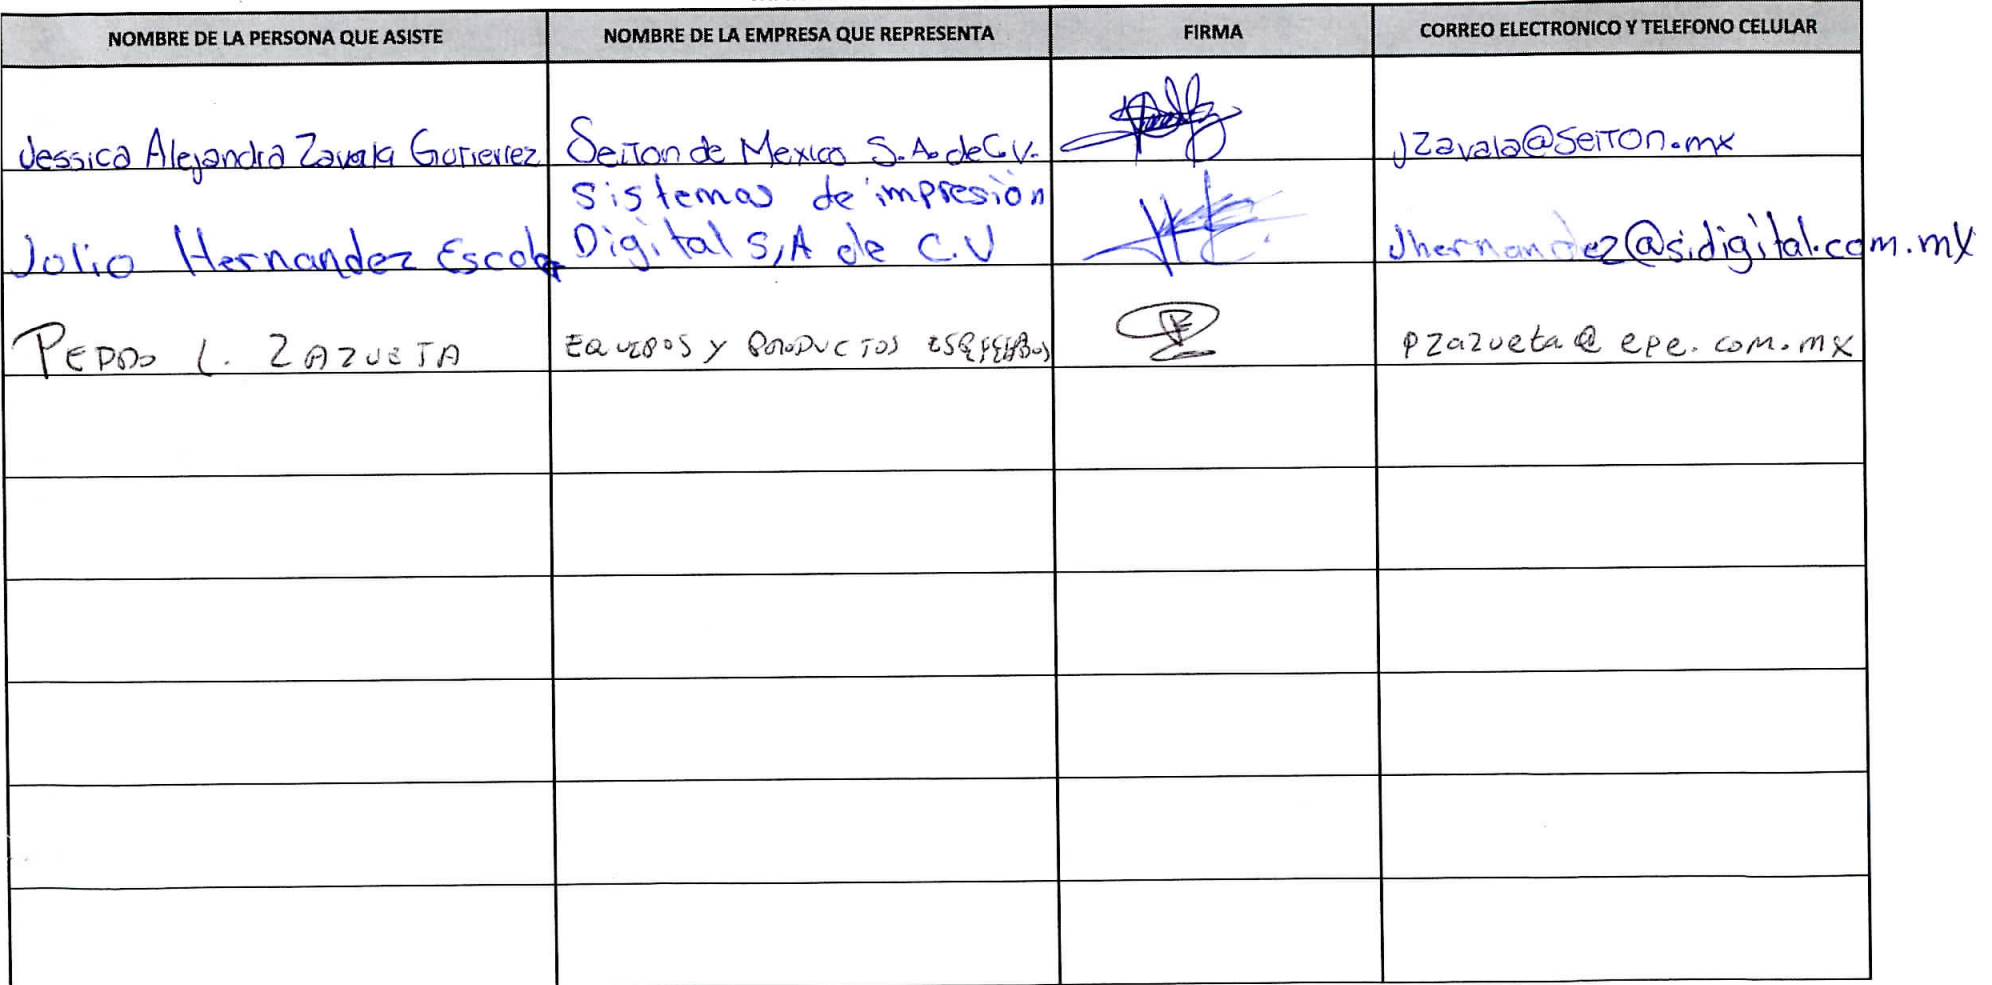 NOMBRE DE LA PERSONA QUE ASISTE NOMBRE DE LA EMPRESA QUE REPRESENTA FIRMA CORREO ELECTRONICO Y TELEFONO CELULAR
Jessica Alejandra Zavala Gutierrez Seiton de Mexico S.A. de C.V. Jzavala@seiton.mx
Sistemas de impresión
Julio Hernandez Escobar Digital S,A de C.V Jhernandez@sidigital.com.mx
PEDRO L. ZAZUETA EQUIPOS Y PRODUCTOS pzazueta@epe.com.mx